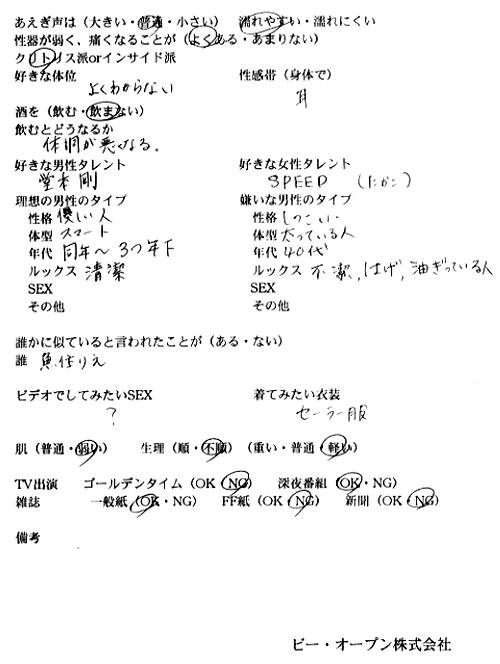 あえぎ声は（大きい・普通・小さい）　濡れやすい・濡れにくい
性器が弱く、痛くなることが（よくある・あまりない）
クリトリス派orインサイド派
好きな体位　性感帯（身体で）
よくわからない　耳
酒を（飲む・飲まない）
飲むとどうなるか
体調が悪くなる。
好きな男性タレント　好きな女性タレント
堂本剛　SPEED　（たかこ）
理想の男性のタイプ　嫌いな男性のタイプ
性格 優しい人　性格 しつこい
体型 スマート　体型 太っている人
年代 同年～3つ年下　年代 40代
ルックス 清潔　ルックス 不潔，はげ，油ぎっている人
SEX　SEX
その他　その他
誰かに似ていると言われたことが（ある・ない）
誰　魚住りえ
ビデオでしてみたいSEX　着てみたい衣装
?　セーラー服
肌（普通・弱い）　生理（順・不順）（重い・普通・軽い）
TV出演　ゴールデンタイム（OK・NG）　深夜番組（OK・NG）
雑誌　一般紙（OK・NG）　FF紙（OK・NG）　新聞（OK・NG）
備考
ビー・オープン株式会社